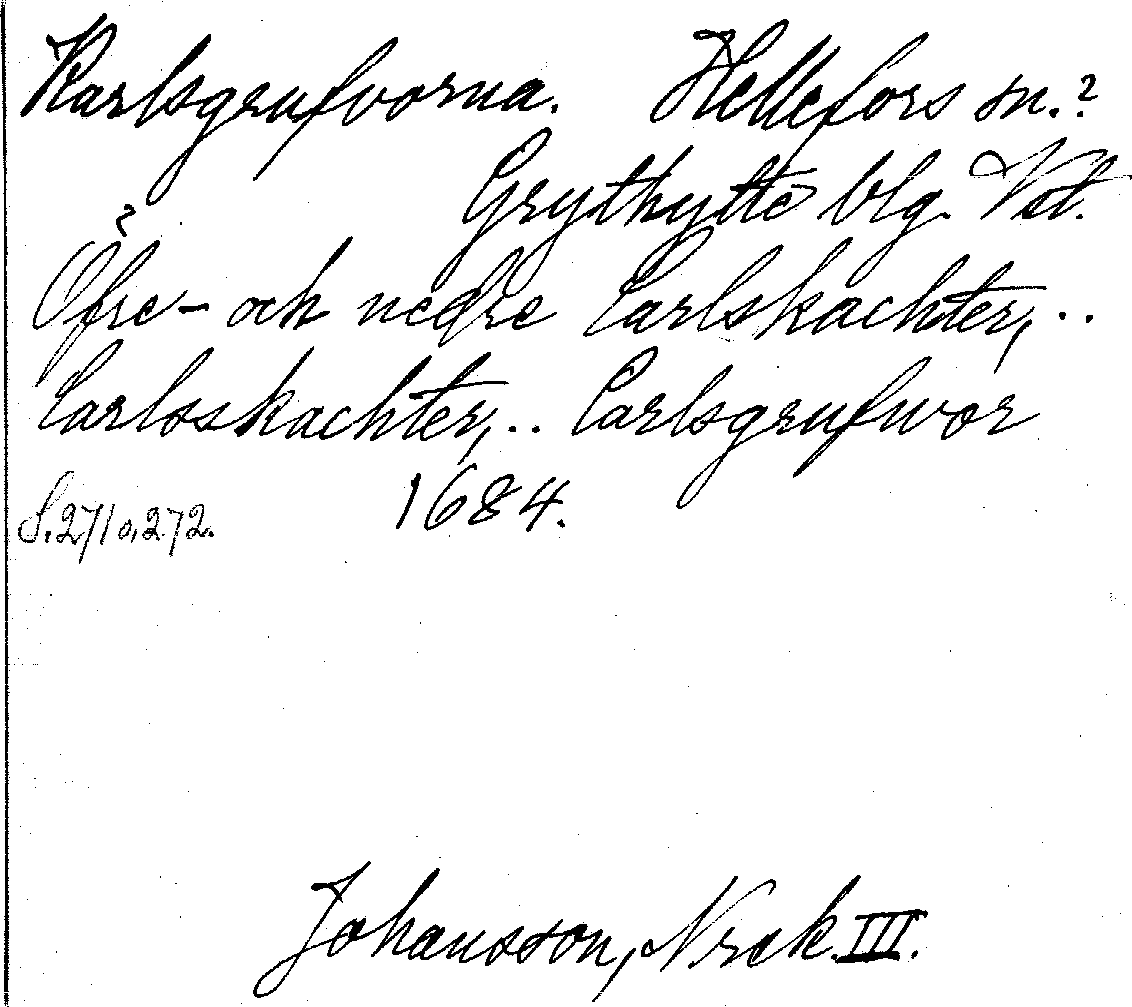 Karlsgrufvorna. Hellefors sn.?
Grythytte blg. Vstl.
?
Öfre- och nedre Carlskachter, ..
Carlsskachter, .. Carlsgrufwor
S. 271 o. 272. 1684.
Johansson, Nrck. III.